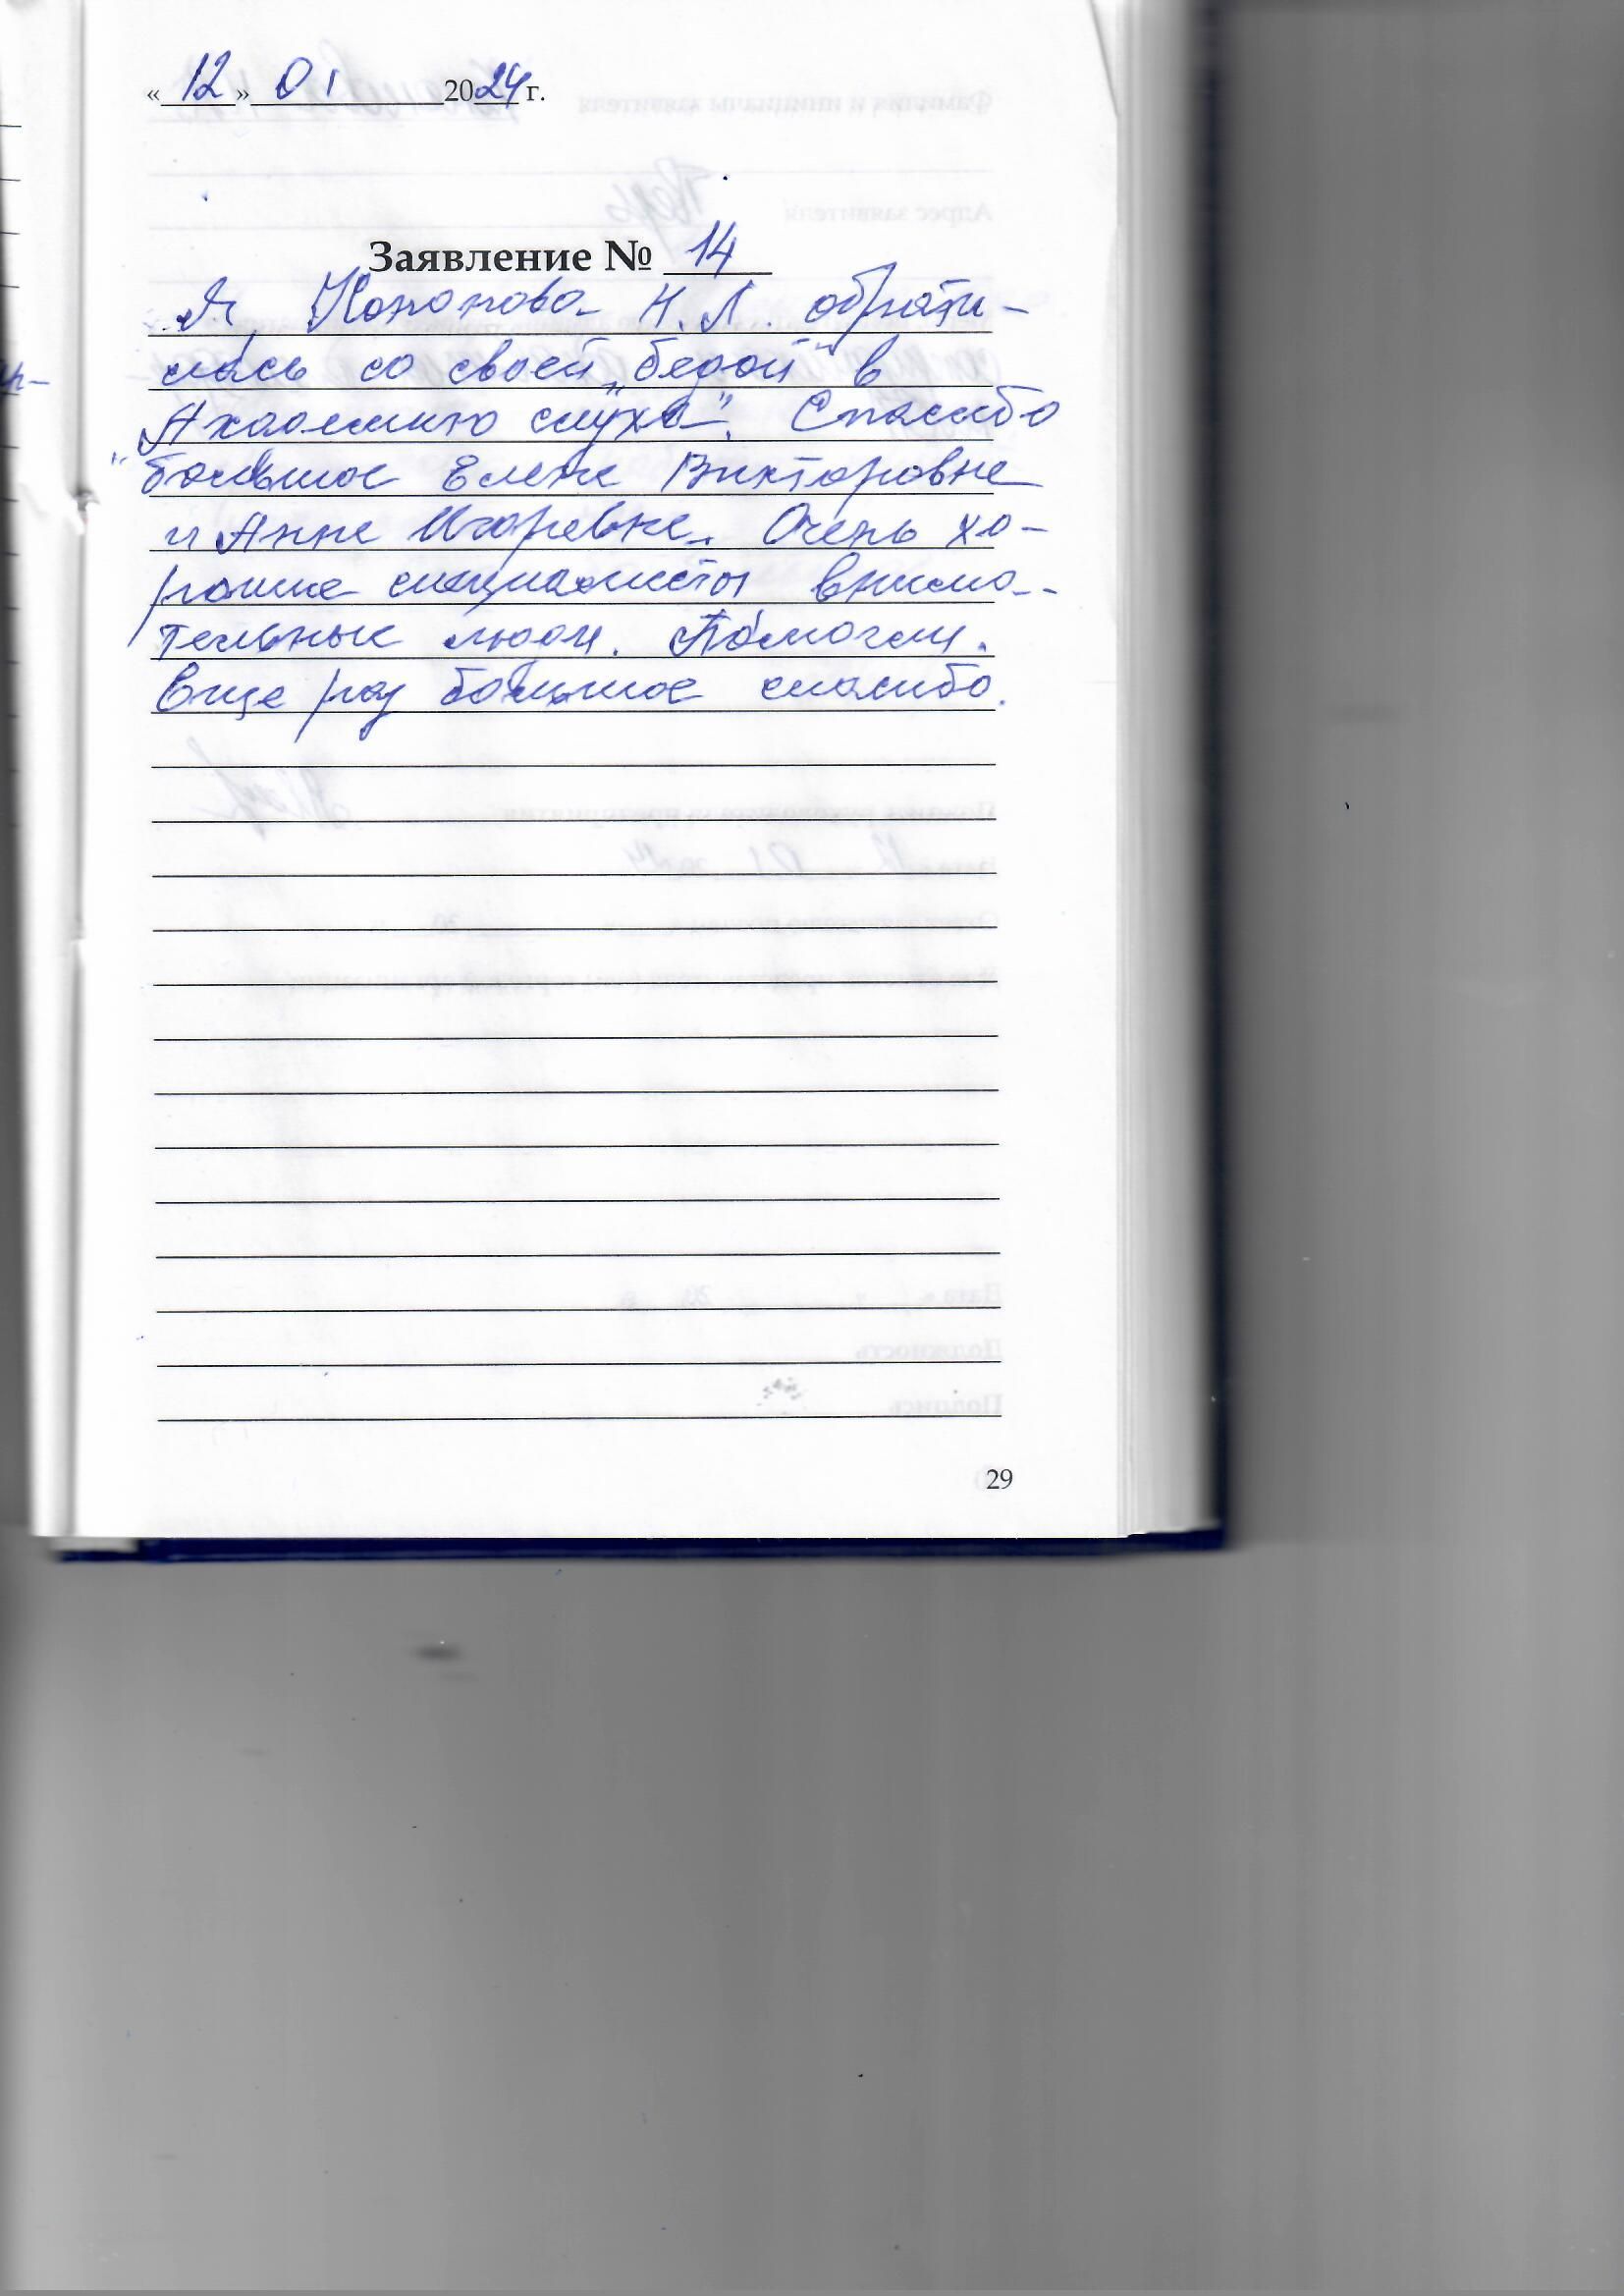 «12» 01 2024 г.
Заявление № 14
Я, Кононова Н.Л. обрати-
лась со своей „бедой" в
"Академию слуха". Спасибо
большое Елене Викторовне
и Анне Игоревне. Очень хо-
рошие специалисты внима-
тельные люди. Помогли.
Еще раз большое спасибо.
29